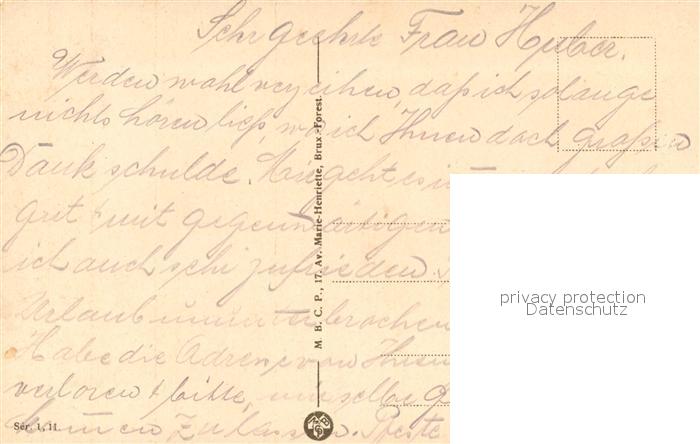 Sehr geehrte Frau Huber.
Werden wohl verzeihen, daß ich solange
nichts hören ließ, wo ich Ihnen doch großen
Dank schulde. Mir geht es
gut & mit gegenwärtigen
ich auch sehr zufrieden.
Urlaub
Habe die Adresse von Ihrem
verloren & bitte, denselben
zu lassen. Beste
M. B. C. P., 17, Av. Marie-Henriette, Brux.-Forest
Sér. 1, 11.
privacy protection
Datenschutz